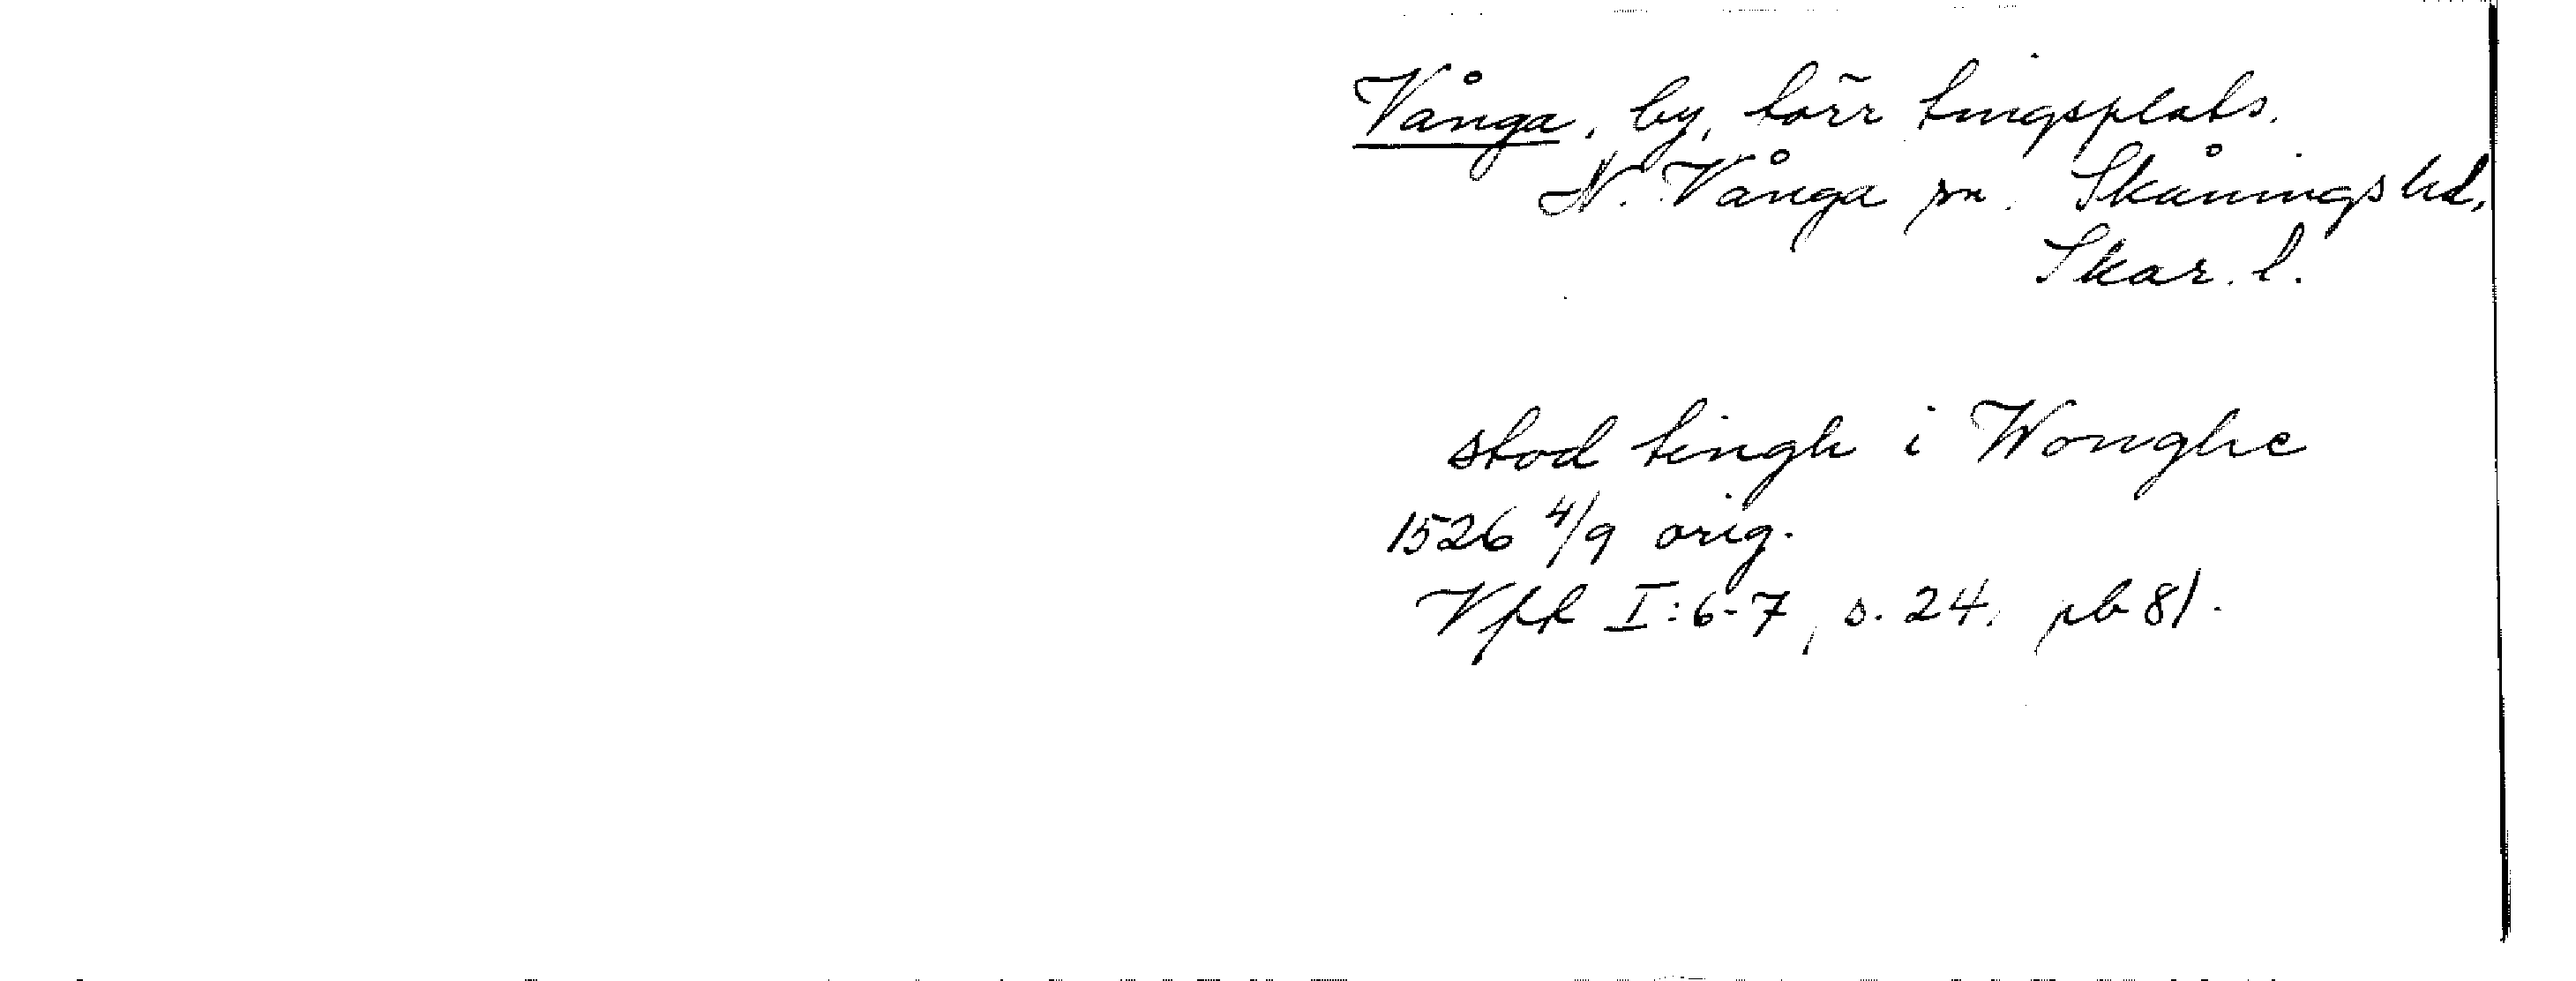 Vånga, by, förr tingsplats.
N. Vånga sn. Skånings hd,
Skar. l.
stod tingh i Wonghe
1526 4/9 orig.
Vfk I:6-7, s. 24, pb 81.